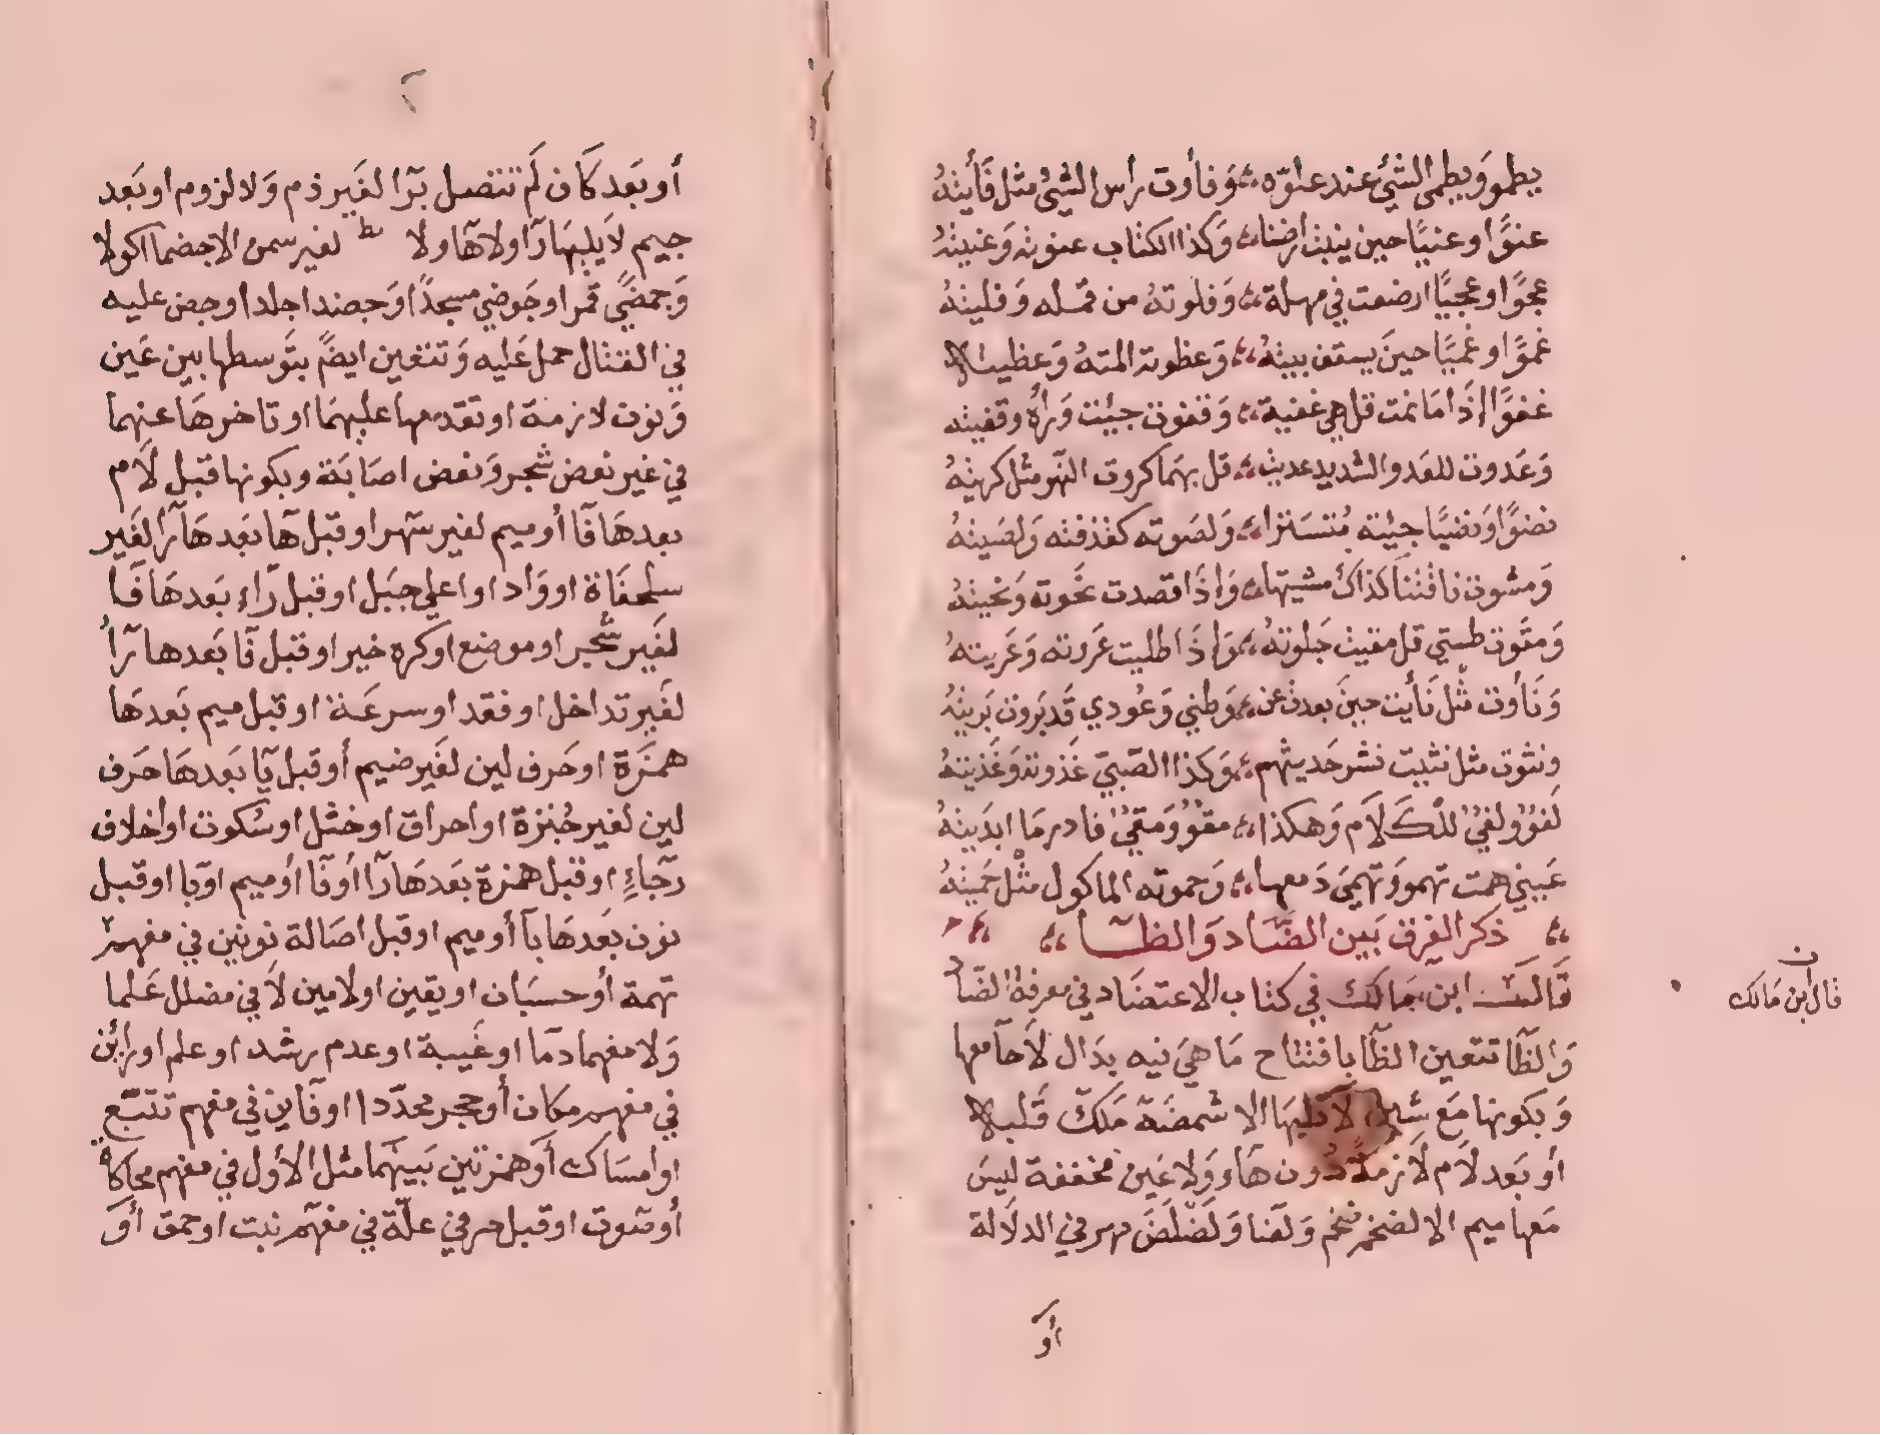 يطمو ويطمى الشئ عند علوّه وفأوت راس الشئ مثل فأيته
عنوًا وعنيًا حين ينبت ارضنا وكذا الكتاب عنوته وعنيته
عجوًا وعجيًا ارضعت في مهلة وفلوته من قمله وفليته
غموًا وغميًا حين يسقف بيته وعظوته المته وعظيته
غفوًا إذا ما نمت قل هي غفية وقفوت جيت وراه وقفيته
وعدوت للعدو الشديد عديت قل بهما كروت النهر مثل كريته
نضوًا ونضيًا جيته متسترا ولصوته كقذفته ولصيته
ومشوت ناقتنا كذاك مشيتها وإذا قصدت نحوته ونحيته
ومقوت طستي قل مقيت جلوته وإذا طلبت عروته وعريته
ونأوت مثل نأيت حين بعدت عن وطني وعودي قد بروت بريته
ونثوت مثل نثيت نشر حديثهم وكذا الصبيّ غذوته وغذيته
لغوٌ ولغيٌ للكلام وهكذا مقوٌ ومقيٌ فادر ما ابديته
عيني همت تهمو وتهمي دمعها وحموته الماكول مثل حميته
ذكر الفرق بين الضاد والظا
قالــــ ابن مالك في كتاب الاعتضاد في معرفة الضاد
قال ابن مالك
والظا تتعين الظا بافتتاح ما هي فيه بدال لا حا معها
وبكونها مع شين لا تليها الا شمضة ملك قلبه
أو بعد لام لازمة دون هاء ولا عين مخففة ليس
معها ميم الا لضخم ولضلض مهر في الدلالة
أو
أو بعد كاف لم تتصل برا لغير ذم ولا لزوم او بعد
جيم لا يليها را ولا ها ولا ط لغير سمن الاجضما اكولا
وجمضي قمرا وجوضي مسجدًا وجضد اجلدا وجض عليه
في القتال حمل عليه وتتعين ايضً بتوسطها بين عين
ونون لازمة او تقدمها عليهما او تاخرها عنهما
في غير نعض شجر ونعض اصابة وبكونها قبل لام
بعدها فا أو ميم لغير سهر او قبل ها بعدها را لغير
سلحفاة او واد او اعلى جبل او قبل راء بعدها فا
لغير شجر او موضع او كره خير او قبل فا بعدها را
لغير تداخل او فقد او سرعة او قبل ميم بعدها
همزة او حرف لين لغير ضيم أو قبل يا بعدها حرف
لين لغير خبزة او احراق او ختل او سكوت او اخلاف
رجاءٍ او قبل همزة بعدها را أو فا أو ميم او با او قبل
نون بعدها با أو ميم او قبل اصالة نونين في مفهم
تهمة أو حسبان او يقين او لامين لا في مضلل علما
ولا مفهما دما او غيبة او عدم رشد او علم او رائن
في مفهم مكان أو حجر محددا او فاين في مفهم تتبّع
او امساك أو همزتين بينهما مثل الأول في مفهم محاكاة
أو صوت او قبل حرفي علّة في مفهم نبت او حمق أو